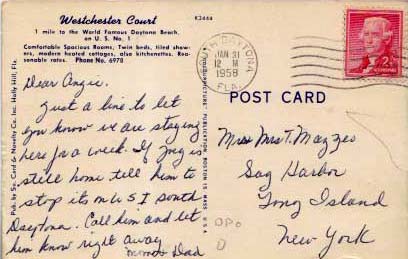 Westchester Court
K3448
1 mile to the World Famous Daytona Beach,
on U S. No. 1
Comfortable Spacious Rooms, Twin beds, tiled showers, modern heated cottages, also kitchenettes. Reasonable rates. Phone No. 6978
SOUTH DAYTONA
JAN 31
12 M
1958
FLA.
2¢
Dear Angie.
Just a line to let
you know we are staying
here for a week. If
still home tell him to
stop its on U S I South
Daytona. Call him and let
him know right away
Mom & Dad
POST CARD
Mrs T. Mazzeo
Sag Harbor
Long Island
New York